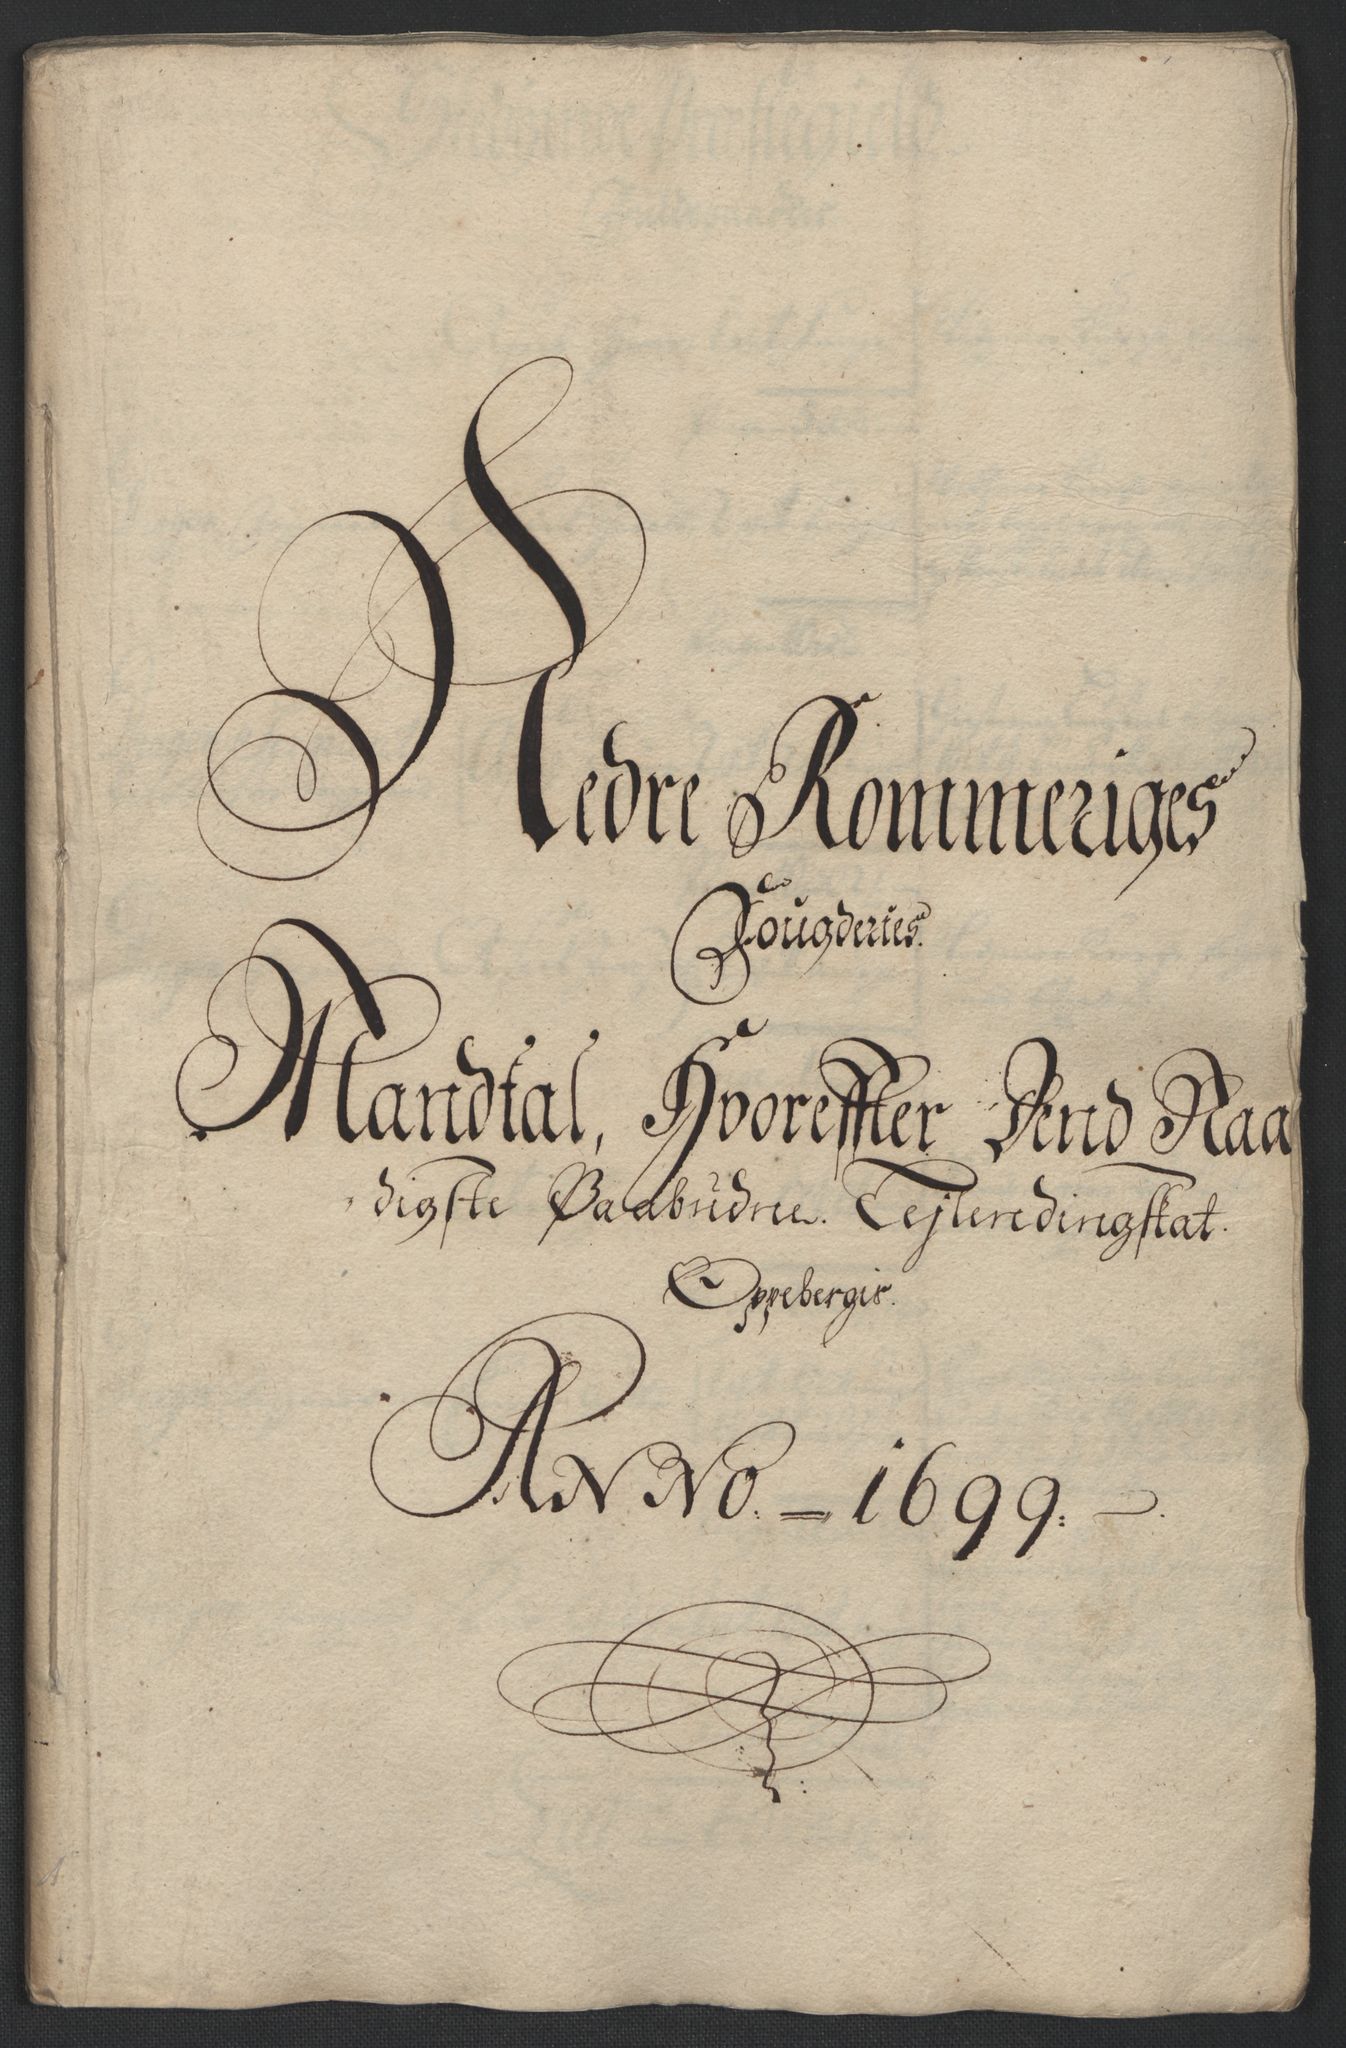 Nedre Rommeriges
Fougderies.
Mandtal, Hvoreffter Dend Naa
digste Paabudne. Tejleredingskat.
Oppebergis.
ANNO. = 1699. -